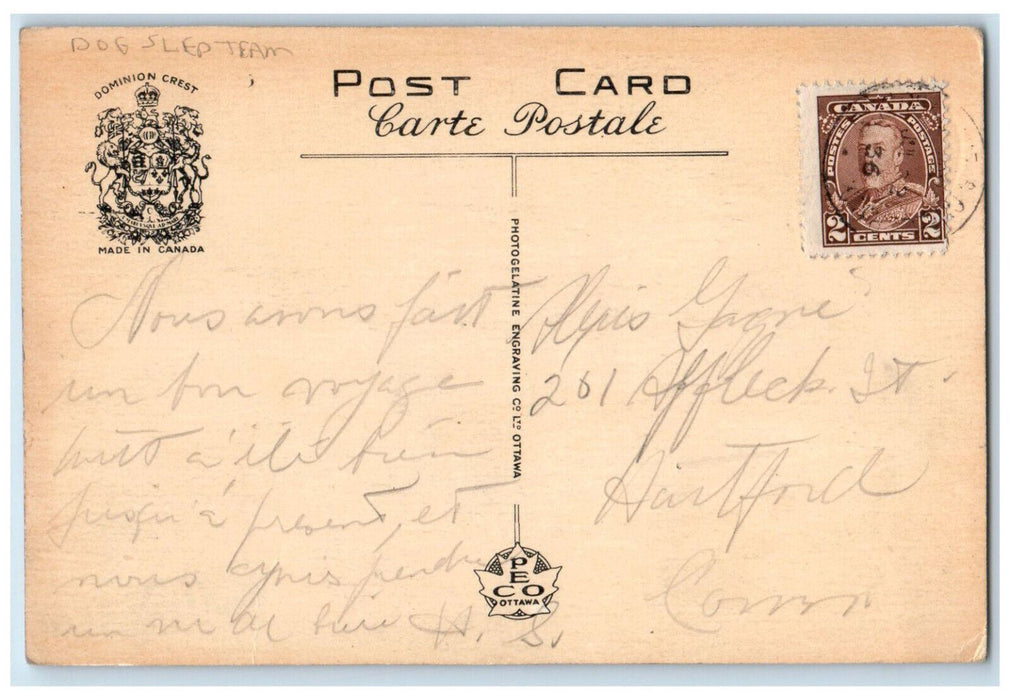 DOG SLED TEAM
DOMINION CREST
MADE IN CANADA
POST CARD
Carte Postale
CANADA
POSTES POSTAGE
2 CENTS 2
PHOTOGELATINE ENGRAVING Cº LTD OTTAWA
PECO
OTTAWA
Nous avons fait
un bon voyage
tout a été bien
jusqu'à present, et
nous
un
H. S.
Alexis Gagné
201 Affleck St.
Hartford
Conn